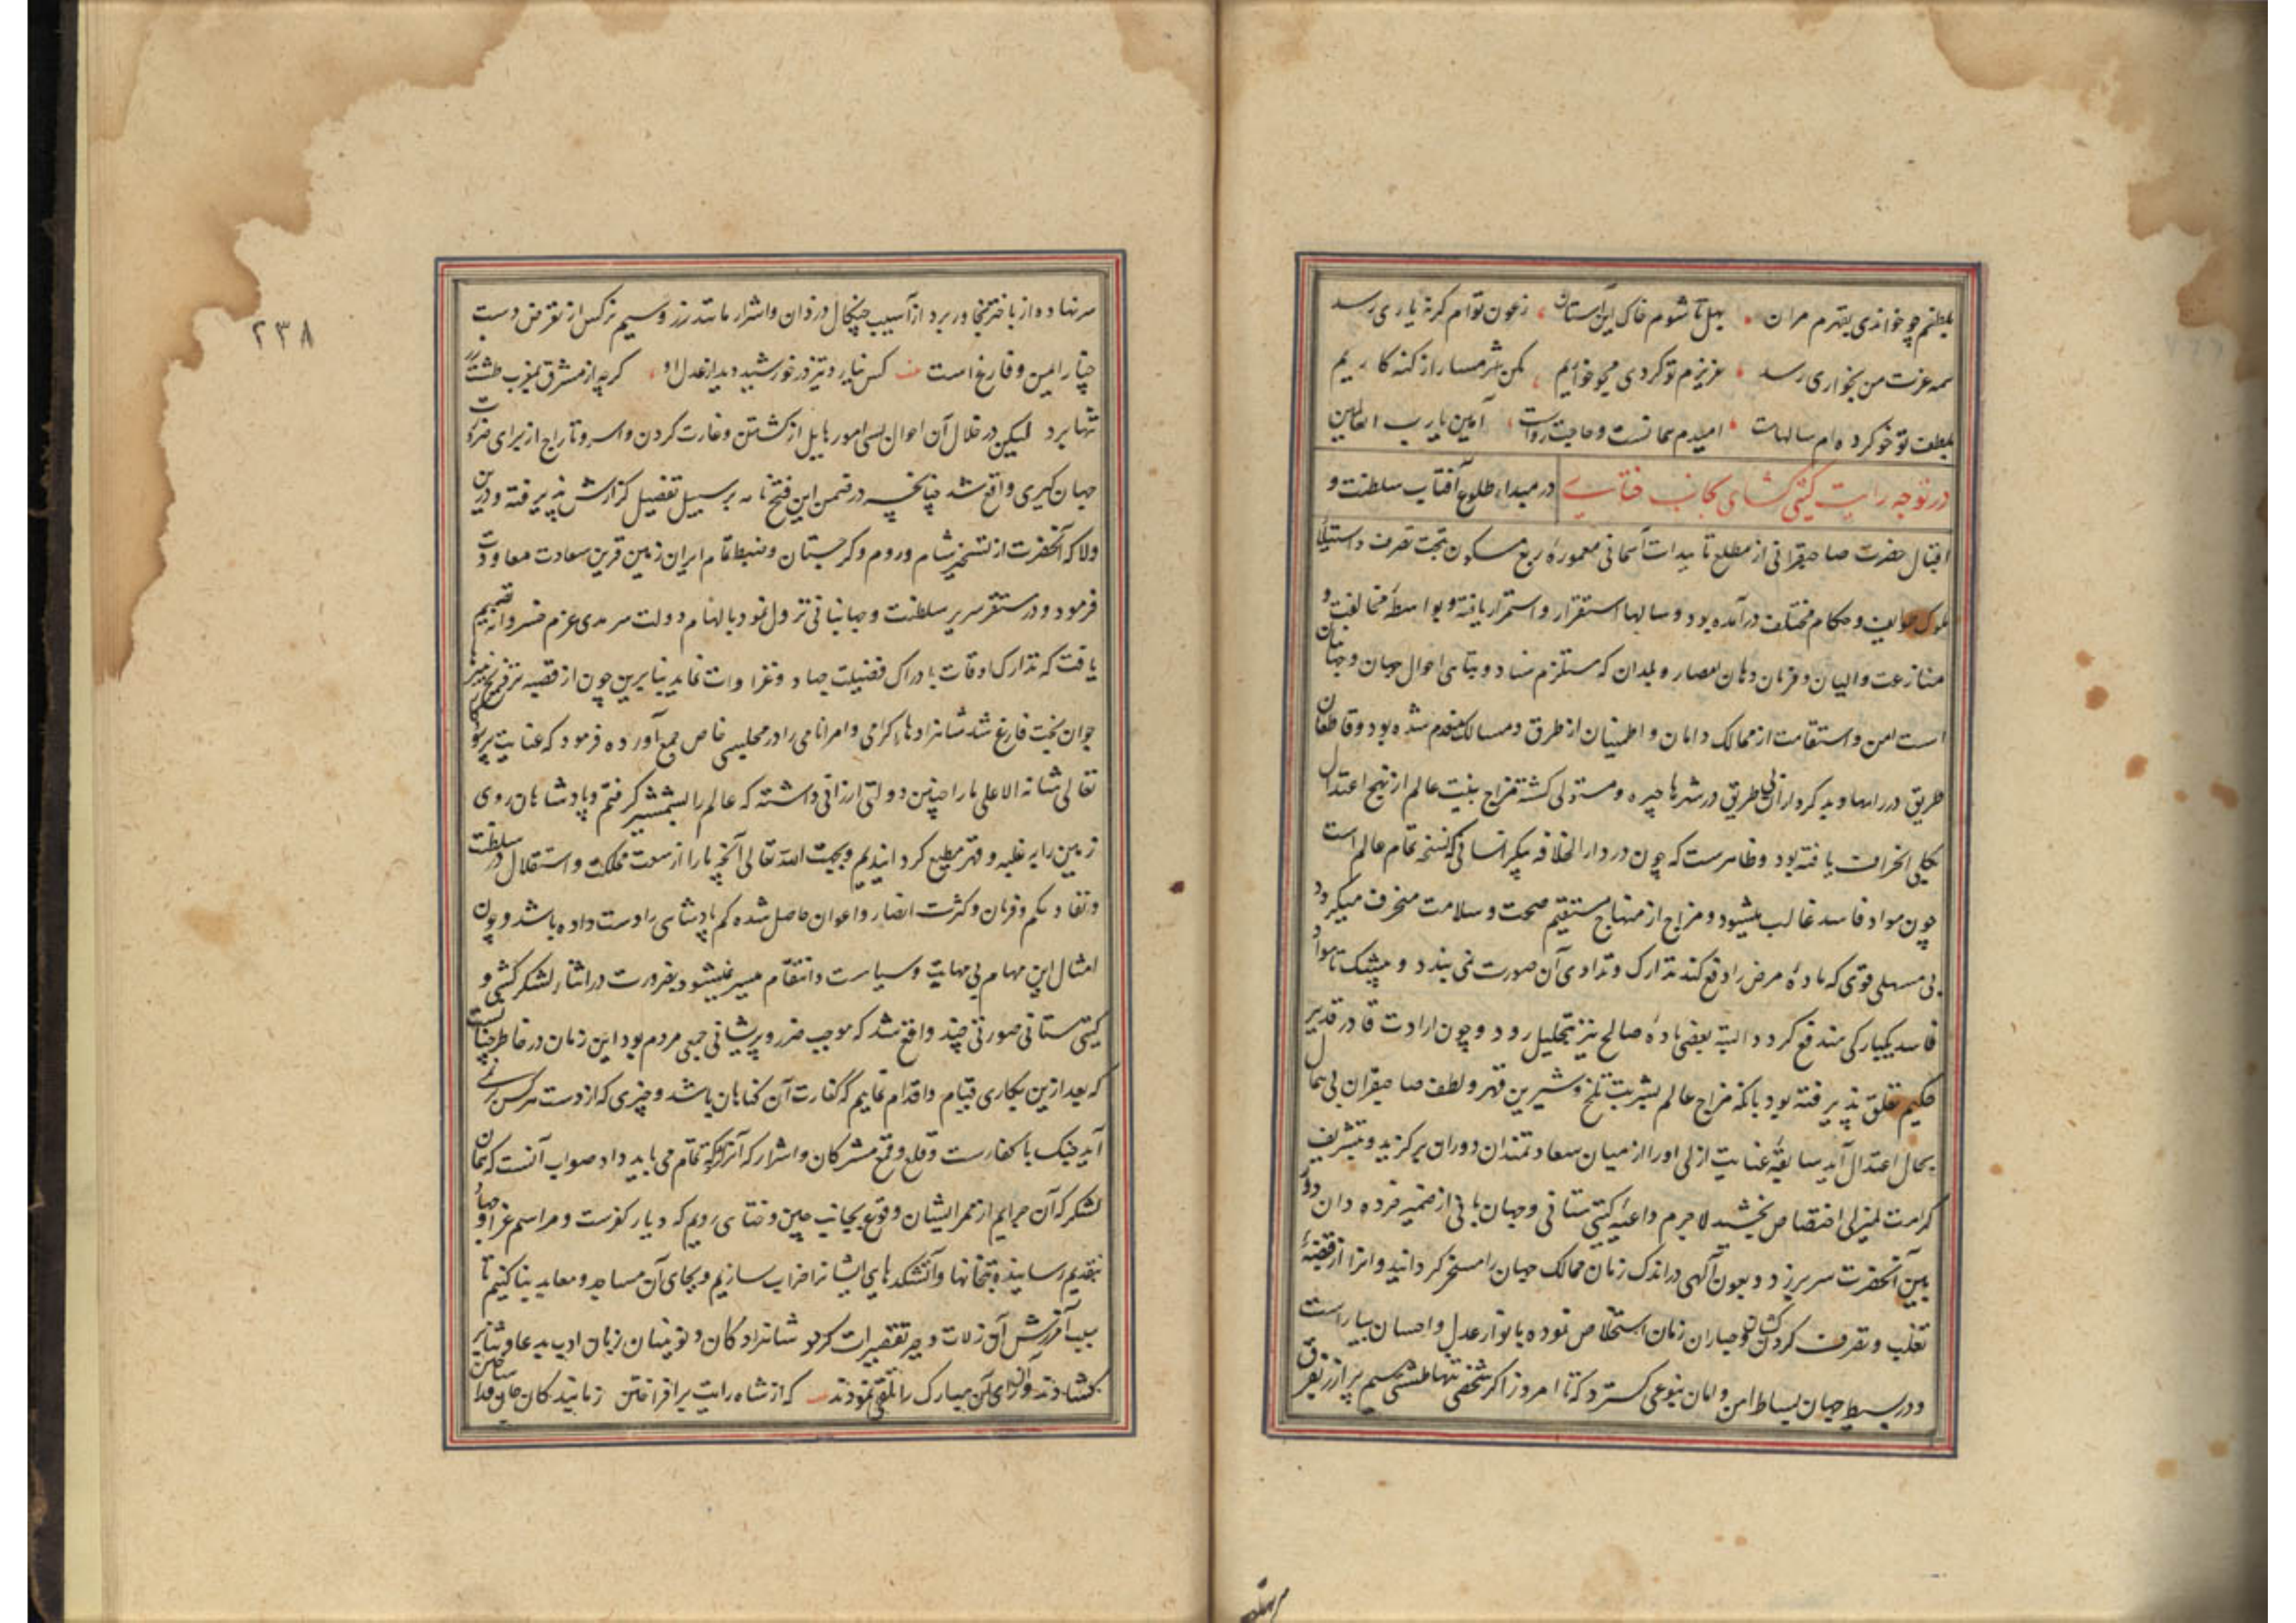 بلطفم چو خواندی بقهرم مران بهل تا شوم خاک این آستان زعون توام گر نه یاری رسد
همه عزت من بخواری رسد عزیزم تو کردی مکن خواریم مکن شرمسار از گنه کاریم
بلطف تو خو کرده‌ام سالهاست امیدم همانست و حاجت رواست آمین یا رب العالمین
در توجه رایت گیتی گشای بجانب ختای در مبداء طلوع آفتاب سلطنت و
اقبال حضرت صاحبقرانی از مطلع تاییدات آسمانی معمورهٔ ربع مسکون بتحت تصرف و استیلاء
ملوک طوایف و حکام مختلف درآمده بود و سالها استقرار و استمرار یافته و بواسطهٔ مخالفت و
منازعت والیان و فرمان دهان امصار و بلدان که مستلزم فساد و تباهی احوال جهان و جهانیان
است امن و استقامت از ممالک و امان و اطمینان از طرق و مسالک منعدم شده بود و قاطعان
طریق در راهها و بدکرداران بی طریق در شهرها چیره و مستولی گشته مزاج بنیت عالم از نهج اعتدال
بکلی انحراف یافته بود و ظاهرست که چون در دار الخلافه پیکر انسانی که نسخهٔ تمام عالم است
چون مواد فاسد غالب میشود و مزاج از منهاج مستقیم صحت و سلامت منحرف میگردد
بی مسهلی قوی که مادهٔ مرض را دفع کند تدارک و تداوی آن صورت نمی بندد و بیشک تا مواد
فاسد بیکبارگی مندفع گردد البته بعضی مادهٔ صالح نیز بتحلیل رود و چون ارادت قادر قدیر
حکیم تعلق پذیرفته بود بانکه مزاج عالم بشربت تلخ و شیرین قهر و لطف صاحبقران بی همال
بحال اعتدال آید سابقهٔ عنایت ازلی او را از میان سعادتمندان دوران برگزید و بتشریف
کرامت لم یزلی اختصاص بخشید لاجرم داعیهٔ گیتی ستانی و جهان بانی از ضمیر خرده دان دور
بین آنحضرت سر برزد و بعون آلهی در اندک زمان ممالک جهان را مسخر گردانید و انرا از قبضهٔ
تغلب و تصرف گردن کشان و جباران زمان استخلاص نموده بانوار عدل و احسان بیاراست
و در بسیط جهان بساط امن و امان بنوعی گسترد که تا امروز اگر شخصی تنها طشتی سیم پر از زر بر فرق
سر نهاده از باختر بخاور برد از آسیب چنگال دزدان و اشرار مانند زر و سیم نرگس از تعرض دست
چنار ایمن و فارغ است کس نیارد تیز در خورشید دید از عدل او گرچه از مشرق بمغرب طشت زر
تنها برد لیکن در خلال آن احوال بسی امور هایل از کشتن و غارت کردن و اسر و تاراج از برای ضرورت
جهان گیری واقع شد چنانچه در ضمن این فتح نامه بر سبیل تفصیل گزارش پذیرفته و درین
ولا که آنحضرت از تسخیر شام و روم و گرجستان و ضبط تمام ایران زمین قرین سعادت معاودت
فرمود و در مستقر سریر سلطنت و جهانبانی نزول نمود بالهام دولت سرمدی عزم خسروانه تصمیم
یافت که تدارک اوقات بادراک فضیلت جهاد و غزاوات نماید بنابرین چون از قضیه
جوان بخت فارغ شد شاهزادهای گرامی و امراء نامی را در مجلسی خاص جمع آورده فرمود که عنایت
تعالی شانه الاعلی ما را چنین دولتی ارزانی داشته که عالم را بشمشیر گرفتم و پادشاهان روی
زمین را بغلبه و قهر مطیع گردانیدیم و بحمد الله تعالی آنچه ما را از سعت مملکت و استقلال در سلطنت
و نفاذ حکم و فرمان و کثرت انصار و اعوان حاصل شده کم پادشاهی را دست داده باشد و چون
امثال این مهام بی مهابت و سیاست و انتقام میسر نمیشود بضرورت در اثناء لشکر کشی و
گیتی ستانی صورتی چند واقع شد که موجب ضرر و پریشانی جمعی مردم بود این زمان در خاطر چنانست
که بعد ازین بکاری قیام و اقدام نماییم که کفارت آن گناهان باشد و چیزی که از دست هر کس بر نمی
آید جنگ با کفارست و قلع و قمع مشرکان و اشرار که آنرا تمام می باید داد صواب آنست که همان
لشکر که آن جرایم از ممر ایشان وقوع بجانب چین و ختای رویم که دیار کفرست و مراسم غزا و جهاد
بتقدیم رسانیده بتخانها و آتشکدهای ایشانرا خراب سازیم و بجای آن مساجد و معابد بنا کنیم تا
سبب آمرزش آن زلات و تقصیرات گردد شاهزادگان و نوینان زبان ادب بدعا و ثنا بر
گشادند و رای مبارک را تلقی نمودند که از شاه رایت برافراختن ز ما بندگان جان فدا ساختن
۲۳۸
سر نهاده